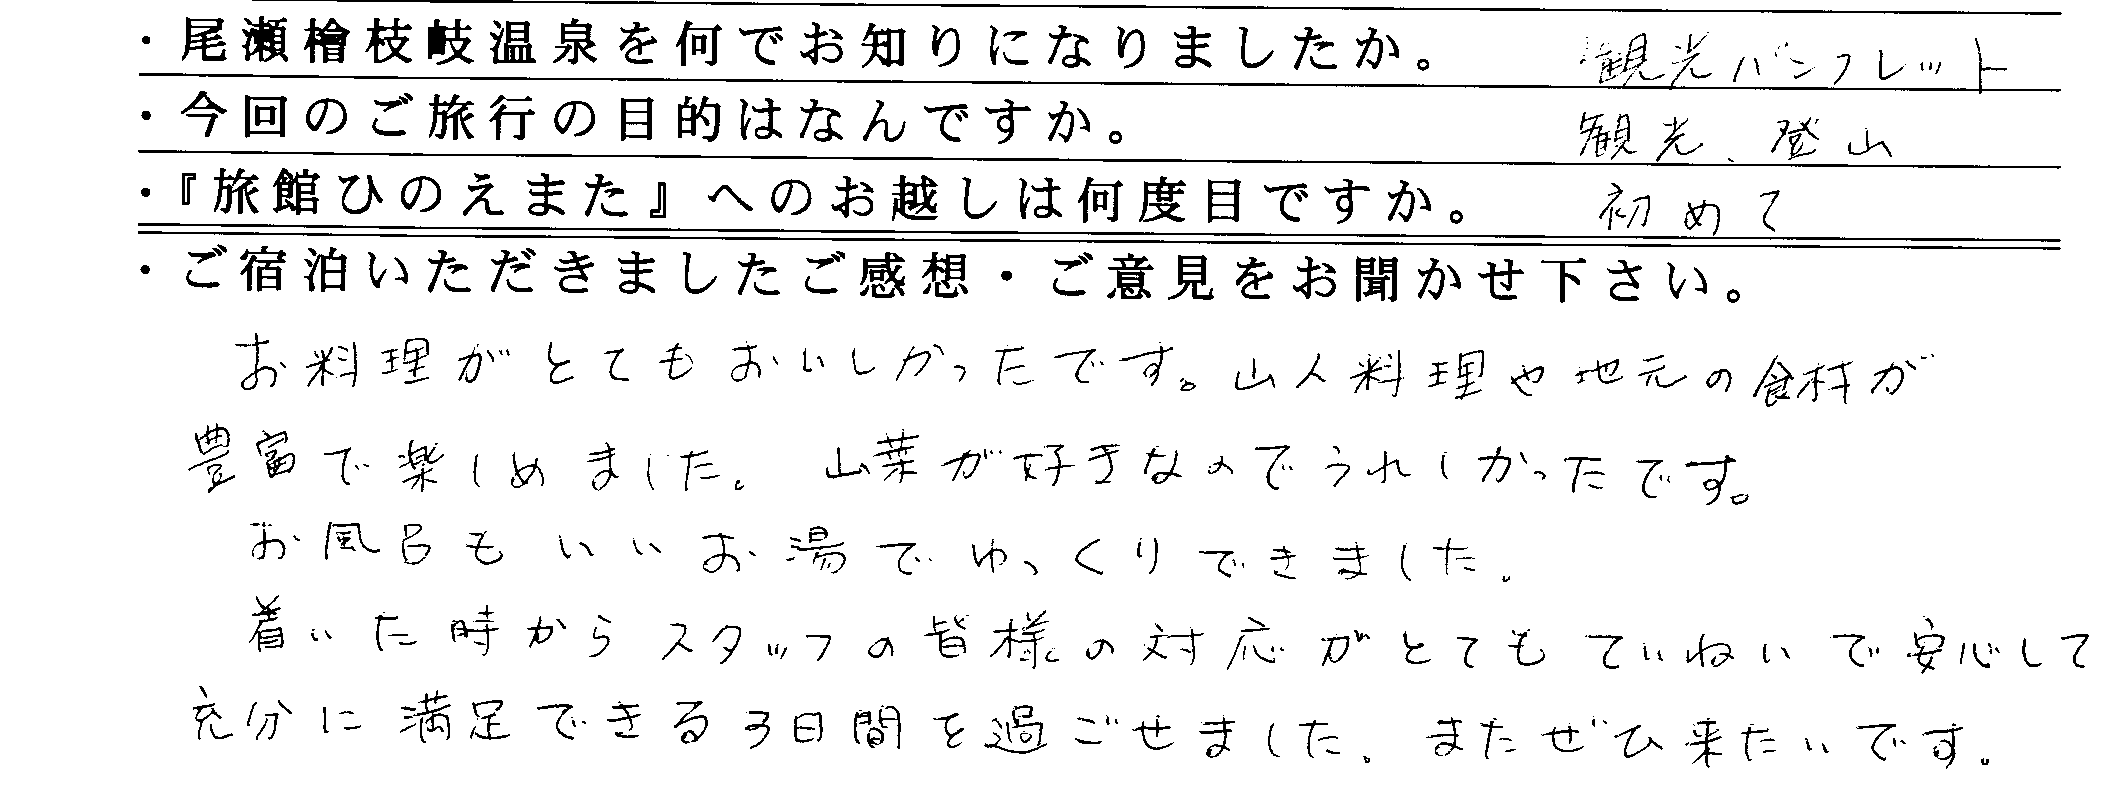 ・尾瀬檜枝岐温泉を何でお知りになりましたか。 観光パンフレット
・今回のご旅行の目的はなんですか。 観光、登山
・『旅館ひのえまた』へのお越しは何度目ですか。 初めて
・ご宿泊いただきましたご感想・ご意見をお聞かせ下さい。
お料理がとてもおいしかったです。山人料理や地元の食材が
豊富で楽しめました。山菜が好きなのでうれしかったです。
お風呂もいいお湯でゆっくりできました。
着いた時からスタッフの皆様の対応がとてもていねいで安心して
充分に満足できる3日間を過ごせました。またぜひ来たいです。